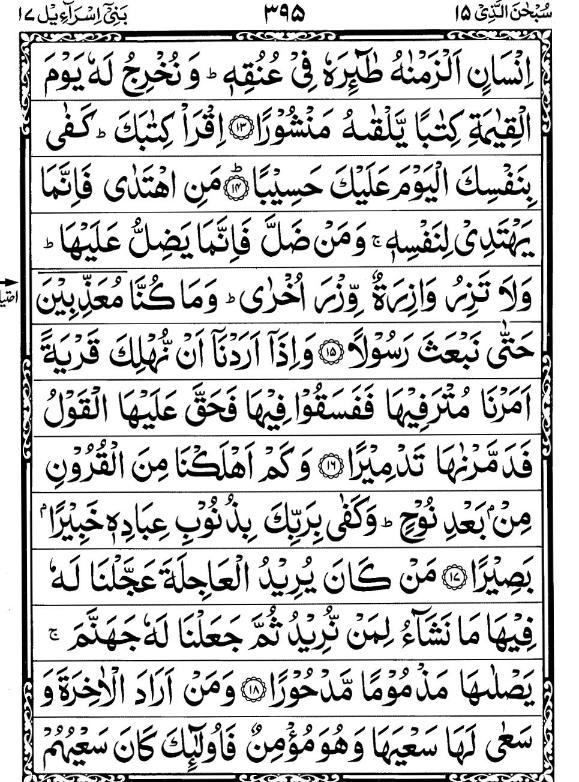 سُبۡحٰنَ الَّذِیۡۤ ۱۵ ۳۹۵ بَنِیۡۤ اِسۡرَآءِیۡل ۱۷
اِنۡسَانٍ اَلۡزَمۡنٰهُ طٰٓئِرَهٗ فِیۡ عُنُقِهٖ ؕ وَ نُخۡرِجُ لَهٗ یَوۡمَ
الۡقِیٰمَةِ كِتٰبًا یَّلۡقٰىهُ مَنۡشُوۡرًا ﴿۱۳﴾ اِقۡرَاۡ كِتٰبَكَ ؕ كَفٰی
بِنَفۡسِكَ الۡیَوۡمَ عَلَیۡكَ حَسِیۡبًا ﴿۱۴﴾ؕ مَنِ اهۡتَدٰی فَاِنَّمَا
یَهۡتَدِیۡ لِنَفۡسِهٖ ۚ وَمَنۡ ضَلَّ فَاِنَّمَا یَضِلُّ عَلَیۡهَا ؕ
وَلَا تَزِرُ وَازِرَةٌ وِّزۡرَ اُخۡرٰی ؕ وَمَا كُنَّا مُعَذِّبِیۡنَ
حَتّٰی نَبۡعَثَ رَسُوۡلًا ﴿۱۵﴾ وَاِذَاۤ اَرَدۡنَاۤ اَنۡ نُّهۡلِكَ قَرۡیَةً
اَمَرۡنَا مُتۡرَفِیۡهَا فَفَسَقُوۡا فِیۡهَا فَحَقَّ عَلَیۡهَا الۡقَوۡلُ
فَدَمَّرۡنٰهَا تَدۡمِیۡرًا ﴿۱۶﴾ وَكَمۡ اَهۡلَكۡنَا مِنَ الۡقُرُوۡنِ
مِنۡۢ بَعۡدِ نُوۡحٍ ؕ وَكَفٰی بِرَبِّكَ بِذُنُوۡبِ عِبَادِهٖ خَبِیۡرًۢا
بَصِیۡرًا ﴿۱۷﴾ مَنۡ كَانَ یُرِیۡدُ الۡعَاجِلَةَ عَجَّلۡنَا لَهٗ
فِیۡهَا مَا نَشَآءُ لِمَنۡ نُّرِیۡدُ ثُمَّ جَعَلۡنَا لَهٗ جَهَنَّمَ ۚ
یَصۡلٰىهَا مَذۡمُوۡمًا مَّدۡحُوۡرًا ﴿۱۸﴾ وَمَنۡ اَرَادَ الۡاٰخِرَةَ وَ
سَعٰی لَهَا سَعۡیَهَا وَهُوَ مُؤۡمِنٌ فَاُولٰٓئِكَ كَانَ سَعۡیُهُمۡ